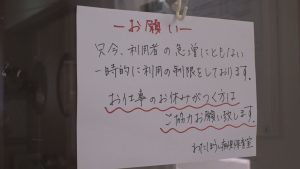 ーお願いー
只今、利用者の急増にともない
一時的に利用の制限をしております。
お仕事のお休みがつく方は
ご協力お願い致します。
病児保育室